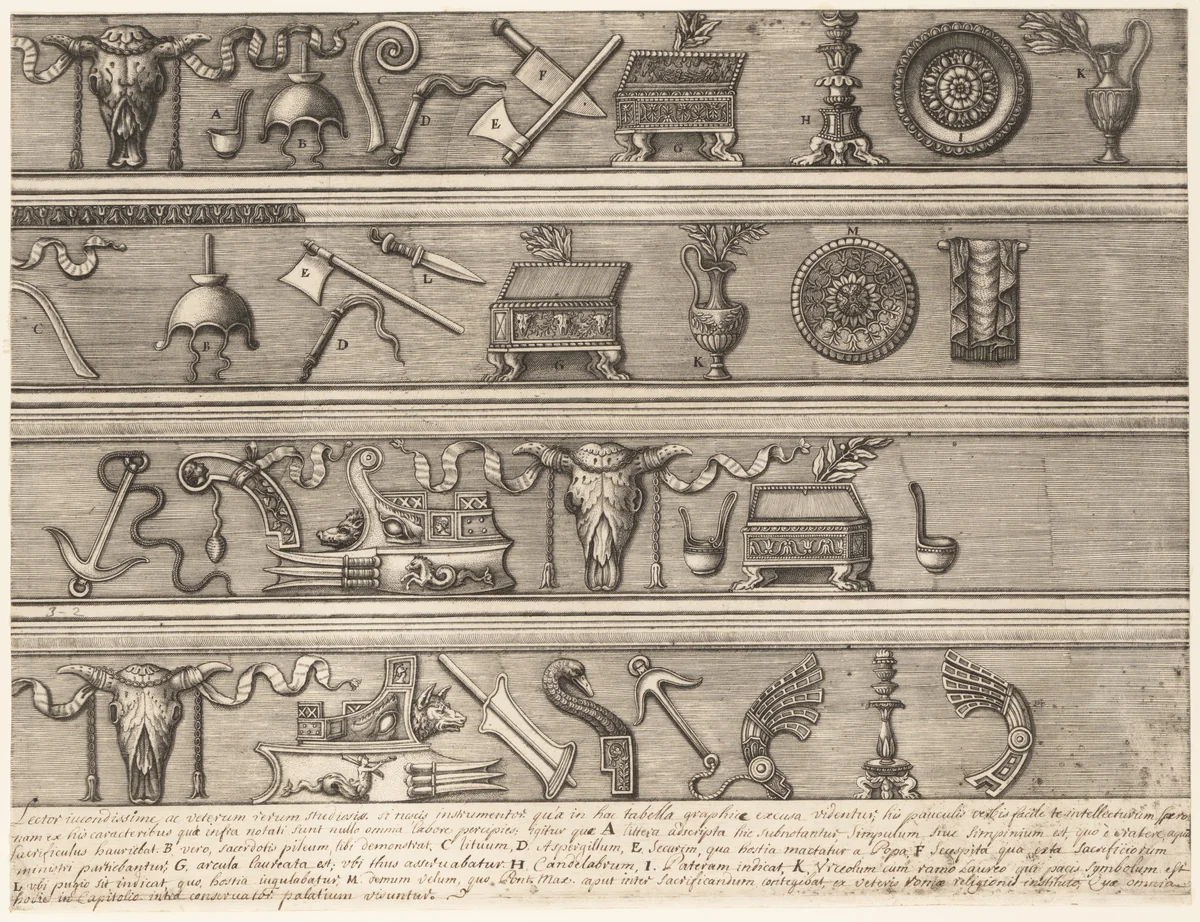 A B C D E F G H I K
C B E D L G K M
3-2
Lector iucondissime, ac veterum rerum studiosiss. si nescis instrumentor. quæ in hac tabella graphice excusa videntur, his pauculis verbis facile te intellecturum, spero;
nam ex his caracteribus quæ infra notati sunt nullo omnia labore percipies; igitur quæ A littera adscripta hic subnotantur Simpulum siue Simpinium est, quo è cratere aqua
sacrificulus hauriebat. B vero, sacerdotis pileum, tibi demonstrat, C lituum, D. Aspergillum, E Securim, qua hostia mactatur a Popa, F Secuspita qua exta Sacrificiorum
ministri partiebantur, G. arcula laureata est, vbi thus asseruabatur. H. Candelabrum, I. Pateram indicat, K. Vrceolum cum ramo Laureo qui pacis symbolum est
L vbi pugio sit indicat, quo, hostia iugulabatur, M. demum velum, quo, Pont. Max. caput inter Sacrificandum contegebat ex veteris romæ religionis instituto, Quæ omnia
hodie in Capitolio intra conseruator. palatium visuntur.